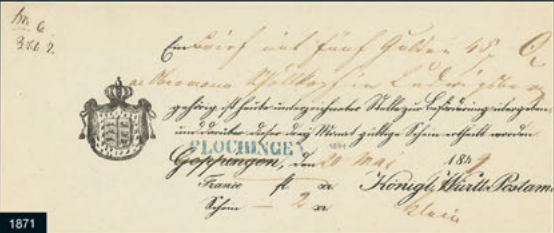 No. 6.
Ein Brief mit fünf Gulden
in Ludwigsburg
gehörig ist heute unterzeichneter Stelle zur Beförderung übergeben,
und darüber dieser drey Monat gültige Schein ertheilt worden.
PLOCHINGEN
Goeppingen, den 20 Mai 18
Franco fl xr Königl. Württ. Postamt
Schein — 2 xr
Klein
1871